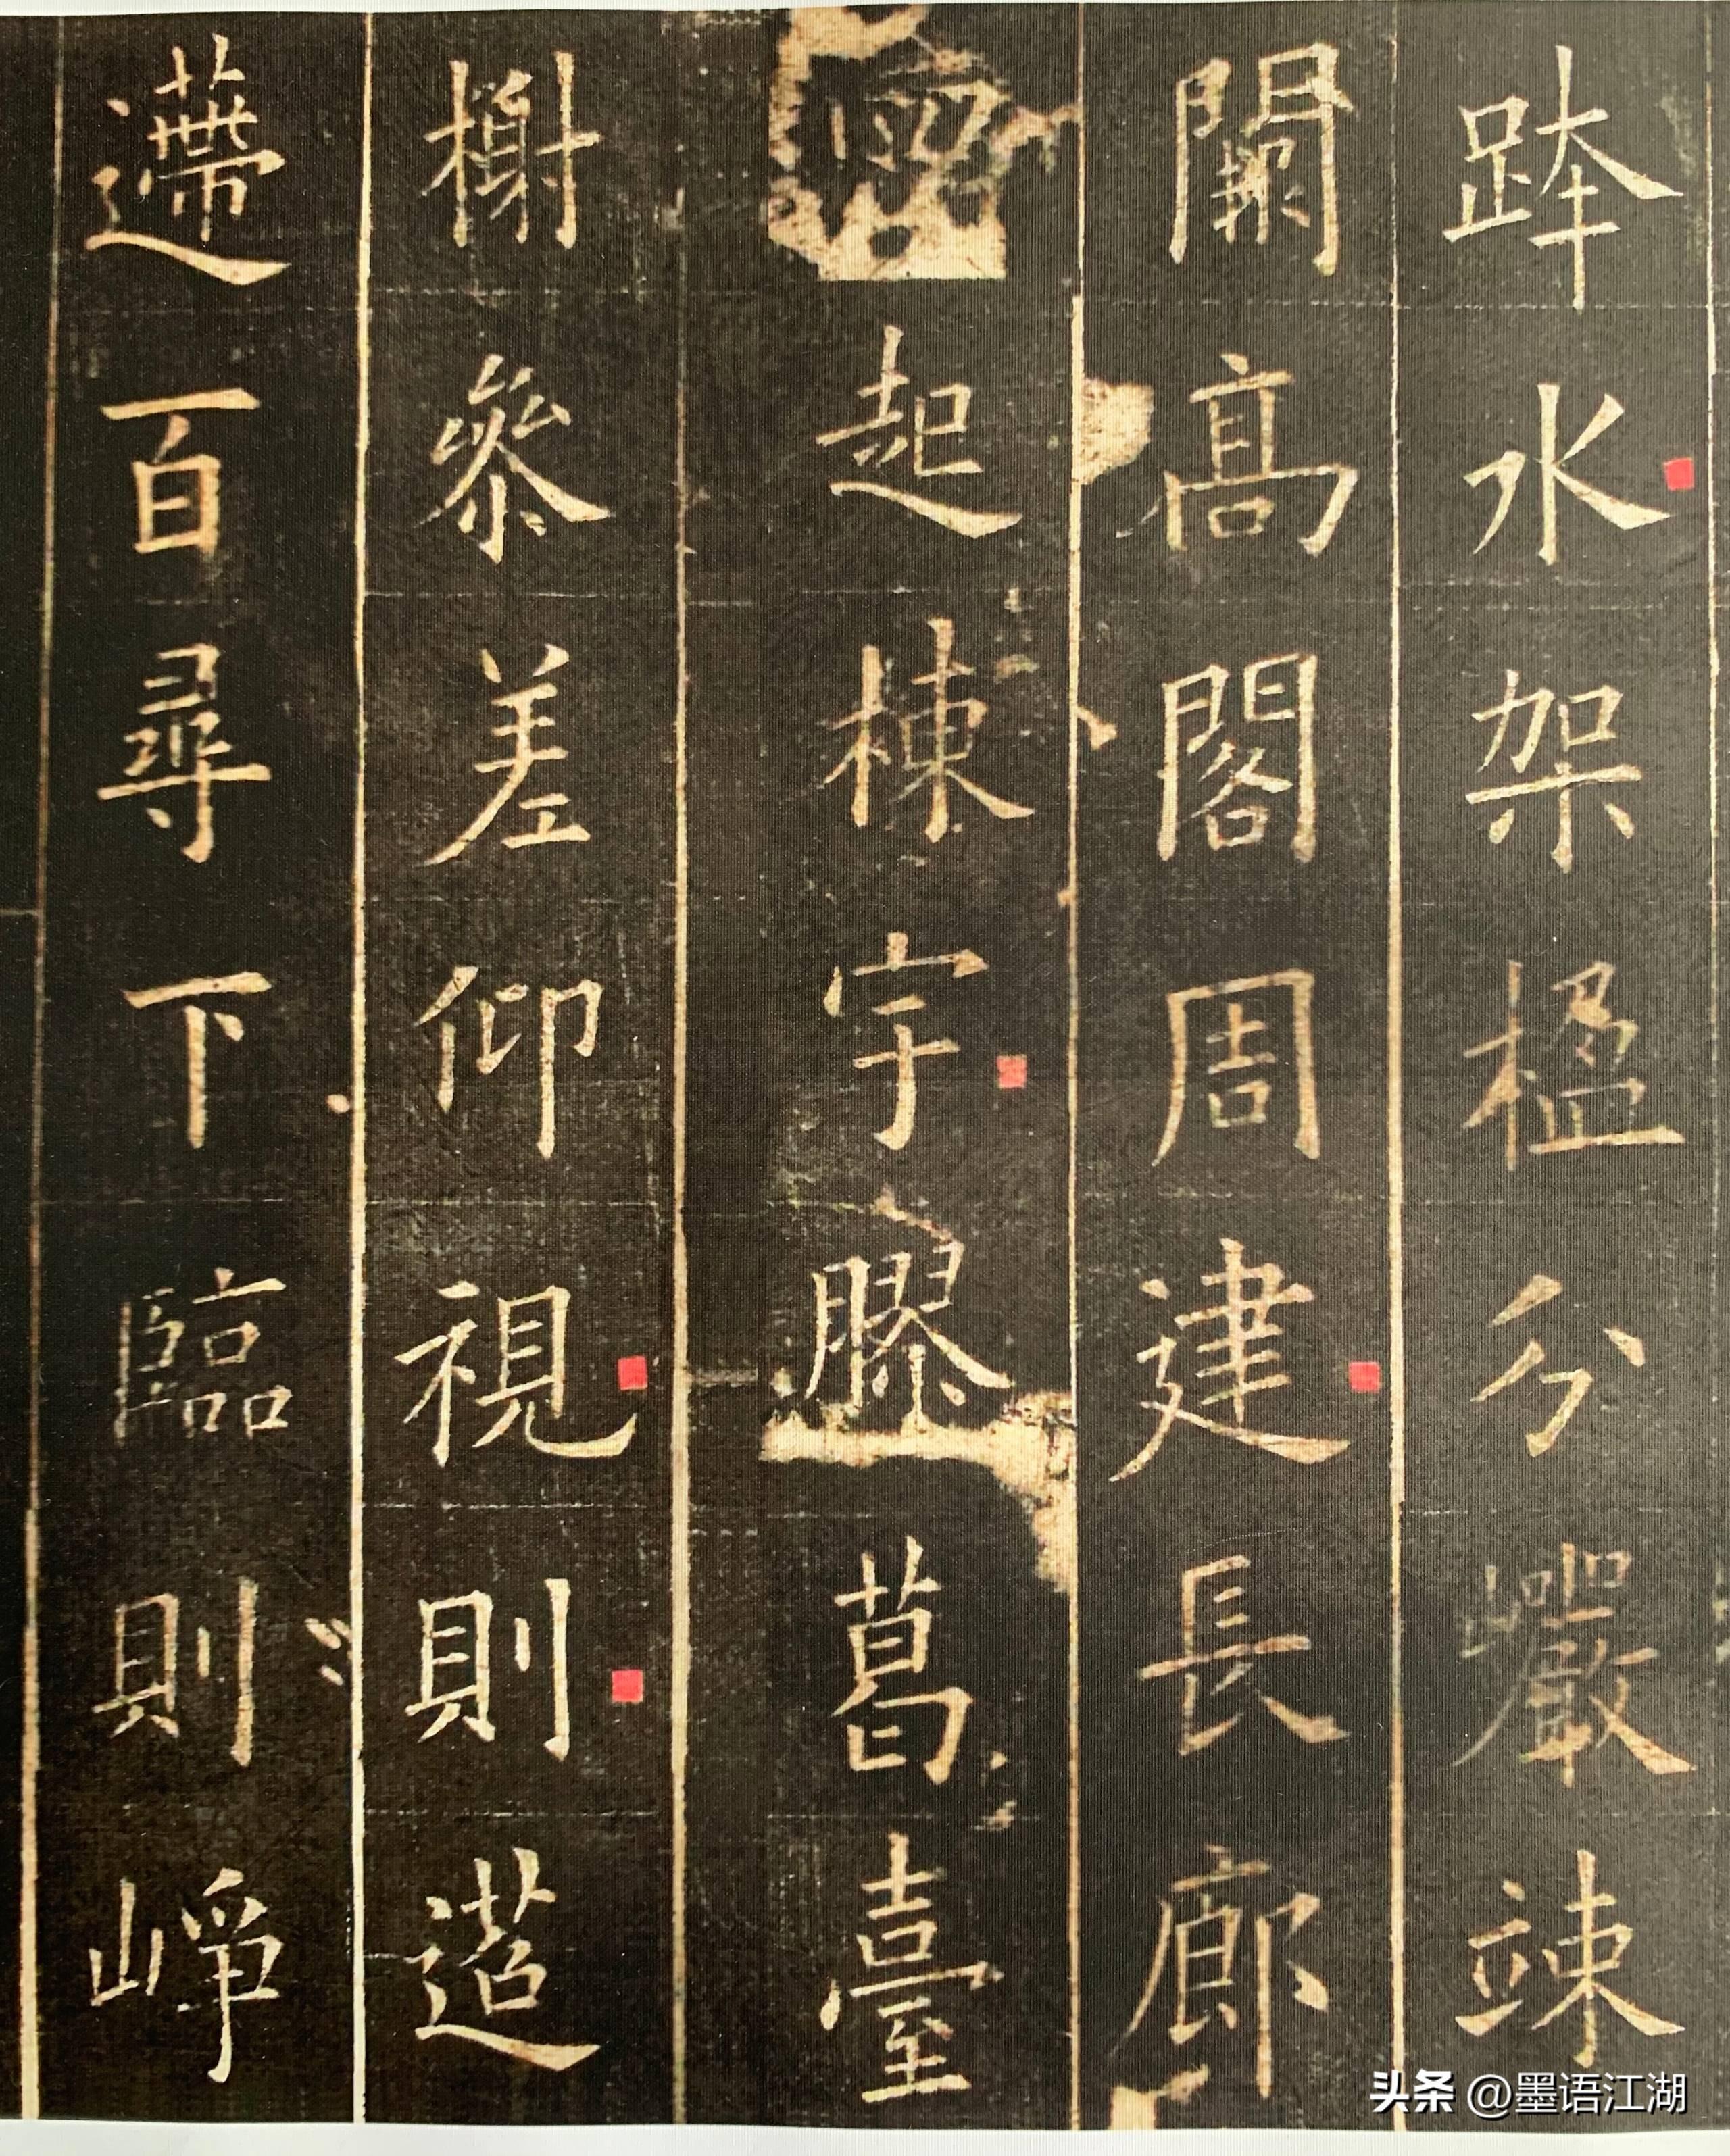 跨水架楹分巖竦
闕高閣周建長廊
四起棟宇膠葛臺
榭參差仰視則迢
遰百尋下臨則崢
头条 @墨语江湖